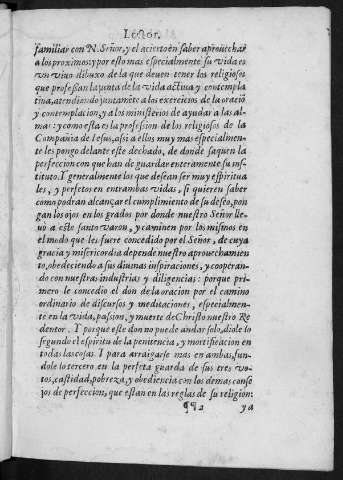 Lector.
familiar con N. Señor, y el acierto en saber aprouechar
a los proximos: y por esto mas especialmente su vida es
vn viuo dibuxo de la que deuen tener los religiosos
que professan la junta de la vida actiua y contempla
tiua, atendiendo juntamẽte a los exercicios de la oraciõ
y contemplacion, y a los ministerios de ayudar a las al-
mas: y como esta es la profession de los religiosos de la
Compañia de Iesus, assi a ellos muy mas especialmen-
te les pongo delante este dechado, de donde saquen la
perfeccion con que han de guardar enteramente su ins-
tituto. Y generalmente los que dessean ser muy espiritua
les, y perfetos en entrambas vidas, si quieren saber
como podran alcançar el cumplimiento de su desseo, pon
gan los ojos en los grados por donde nuestro Señor lle-
uò a este santo varon, y caminen por los mismos en
el modo que les fuere concedido por el Señor, de cuya
gracia y misericordia depende nuestro aprouechamien
to, obedeciendo a sus diuinas inspiraciones, y cooperan-
do con nuestras industrias y diligencias: porque pri-
mero le concedio el don de la oracion por el camino
ordinario de discursos y meditaciones, especialmen-
te en la vida, passion, y muerte de Christo nuestro Re
dentor. Y porque este don no puede andar solo, diole lo
segundo el espiritu de la penitencia, y mortificacion en
todas las cosas. Y para arraigarse mas en ambas, fun-
dole lo tercero, en la perfeta guarda de sus tres vo-
tos, castidad, pobreza, y obediencia con los demas conse
jos de perfeccion, que estan en las reglas de su religion:
¶¶2 ya